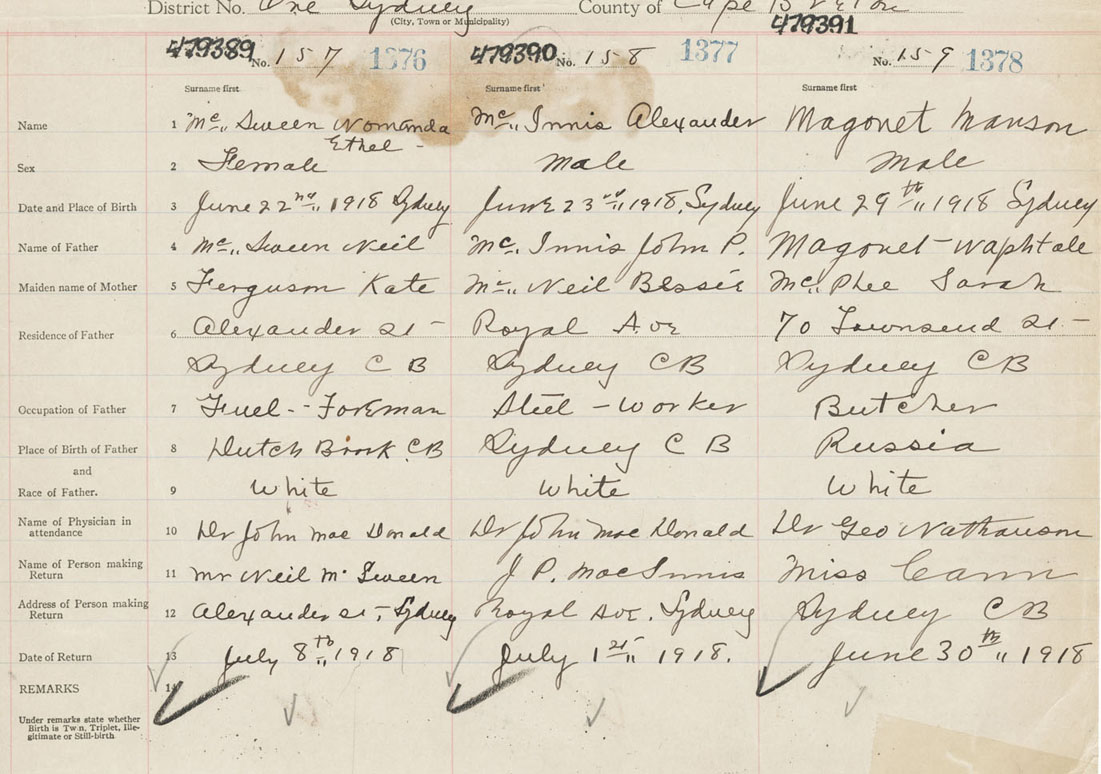 District No. One Sydney County of Cape Breton
(City, Town or Municipality)
479389 No. 157 1376 479390 No. 158 1377 479391 No. 159 1378
Surname first Surname first Surname first
Name 1 Mc Sween Nomanda Mc Innis Alexander Magonet Manson
Ethel
Sex 2 Female Male Male
Date and Place of Birth 3 June 22nd 1918 Sydney June 23rd 1918. Sydney June 29th 1918 Sydney
Name of Father 4 Mc Sween Neil Mc Innis John P. Magonet Naphtale
Maiden name of Mother 5 Ferguson Kate Mc Neil Bessie Mc Phee Sarah
Residence of Father 6 Alexander St Royal Ave 70 Townsend St
Sydney C B Sydney CB Sydney CB
Occupation of Father 7 Fuel - Foreman Steel - Worker Butcher
Place of Birth of Father 8 Dutch Brook CB Sydney C B Russia
and
Race of Father. 9 White White White
Name of Physician in attendance 10 Dr John Mac Donald Dr John Mac Donald Dr Geo Nathanson
Name of Person making Return 11 Mr Neil Mc Sween J P. MacInnis Miss Cann
Address of Person making Return 12 Alexander St, Sydney Royal Ave, Sydney Sydney CB
Date of Return 13 July 8th 1918 July 1st 1918. June 30th 1918
REMARKS 14
Under remarks state whether
Birth is Twin, Triplet, Ille-
gitimate or Still-birth